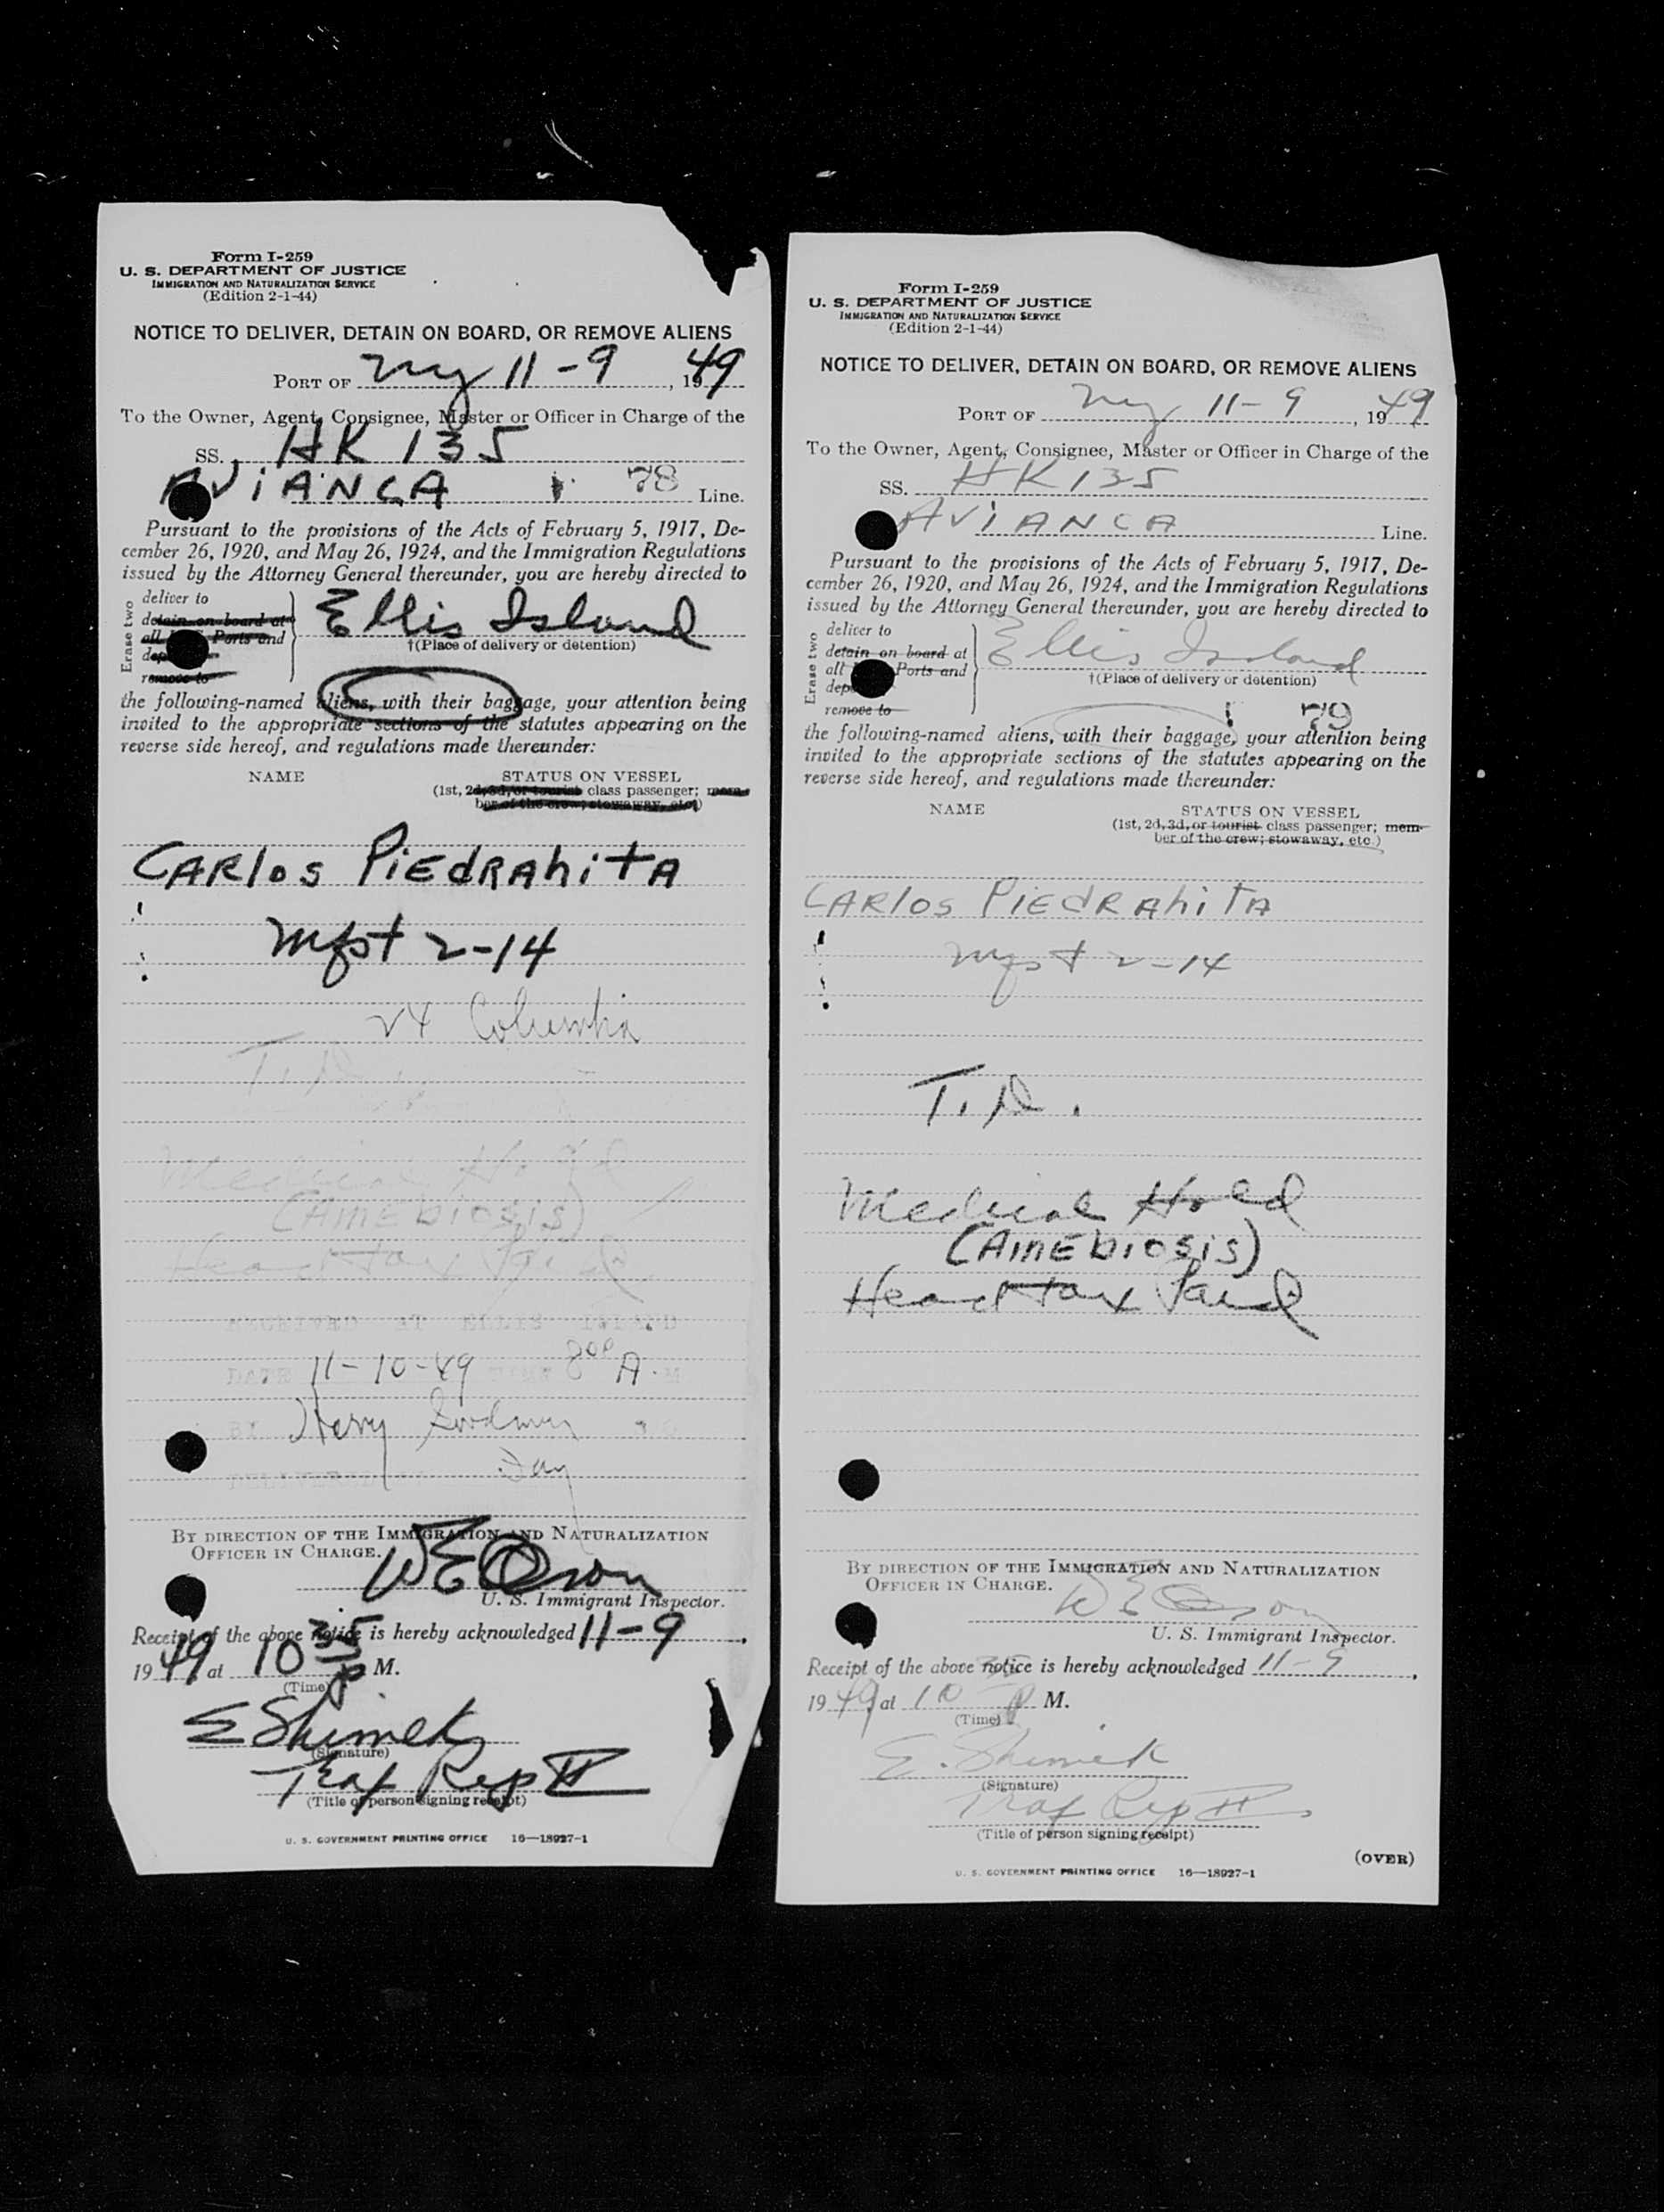 Form I-259
U. S. DEPARTMENT OF JUSTICE
IMMIGRATION AND NATURALIZATION SERVICE
(Edition 2-1-44)
NOTICE TO DELIVER, DETAIN ON BOARD, OR REMOVE ALIENS
PORT OF NY 11-9, 1949
To the Owner, Agent, Consignee, Master or Officer in Charge of the
SS. HK 135
AViANCA 78 Line.
Pursuant to the provisions of the Acts of February 5, 1917, De-
cember 26, 1920, and May 26, 1924, and the Immigration Regulations
issued by the Attorney General thereunder, you are hereby directed to
Erase two
deliver to
detain on board at
all Ports and
dep
remove to
Ellis Island
†(Place of delivery or detention)
the following-named aliens, with their baggage, your attention being
invited to the appropriate sections of the statutes appearing on the
reverse side hereof, and regulations made thereunder:
NAME STATUS ON VESSEL
(1st, 2d, 3d, or tourist class passenger; mem-
ber of the crew; stowaway, etc.)
CARlos PiEdRAhitA
Mfst 2-14
24 Columbia
T.D.
Medical Hold
(AmEbiosis)
Head tax Paid
RECEIVED AT ELLIS ISLAND
DATE 11-10-49 TIME 8 00 A.M
BY
DELIVERED
BY DIRECTION OF THE IMMIGRATION AND NATURALIZATION
OFFICER IN CHARGE.
U. S. Immigrant Inspector.
Receipt of the above notice is hereby acknowledged 11-9,
1949 at 10 35 P M.
(Time)
E Shimek
(Signature)
Traf Rep II
(Title of person signing receipt)
U. S. GOVERNMENT PRINTING OFFICE 16—18927-1
Form I-259
U. S. DEPARTMENT OF JUSTICE
IMMIGRATION AND NATURALIZATION SERVICE
(Edition 2-1-44)
NOTICE TO DELIVER, DETAIN ON BOARD, OR REMOVE ALIENS
PORT OF NY 11-9, 1949
To the Owner, Agent, Consignee, Master or Officer in Charge of the
SS. HK 135
AViANCA Line.
Pursuant to the provisions of the Acts of February 5, 1917, De-
cember 26, 1920, and May 26, 1924, and the Immigration Regulations
issued by the Attorney General thereunder, you are hereby directed to
Erase two
deliver to
detain on board at
all Ports and
dep
remove to
Ellis Island
†(Place of delivery or detention)
79
the following-named aliens, with their baggage, your attention being
invited to the appropriate sections of the statutes appearing on the
reverse side hereof, and regulations made thereunder:
NAME STATUS ON VESSEL
(1st, 2d, 3d, or tourist class passenger; mem-
ber of the crew; stowaway, etc.)
CARlos PiEdRAhitA
Mfst 2-14
T.D.
Medical Hold
(AmEbiosis)
Head tax Paid
BY DIRECTION OF THE IMMIGRATION AND NATURALIZATION
OFFICER IN CHARGE.
U. S. Immigrant Inspector.
Receipt of the above notice is hereby acknowledged 11-9,
1949 at 10 35 P M.
(Time)
E. Shimek
(Signature)
Traf Rep II
(Title of person signing receipt)
(OVER)
U. S. GOVERNMENT PRINTING OFFICE 16—18927-1